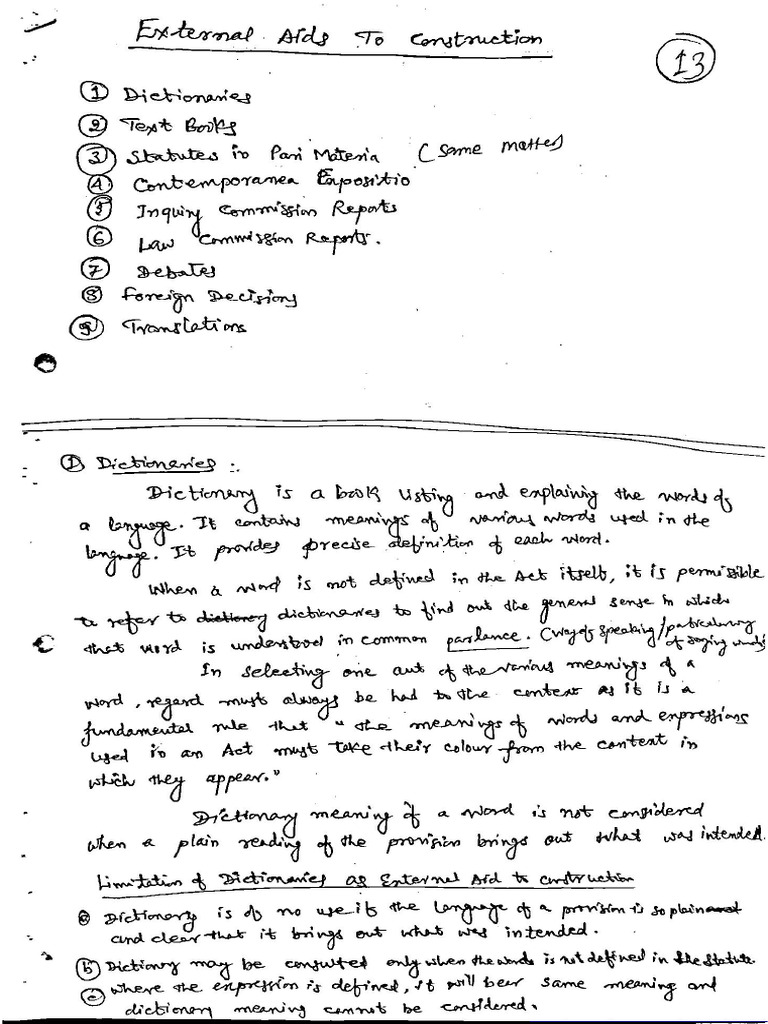 External Aids To Construction
13
① Dictionaries
② Text Books
③ Statutes in Pari Materia (Same matter)
④ Contemporanea Expositio
⑤ Inquiry Commission Reports
⑥ Law Commission Reports.
⑦ Debates
⑧ Foreign Decisions
⑨ Translations
① Dictionaries :.
Dictionary is a book listing and explaining the words of
a language. It contains meanings of various words used in the
language. It provides precise definition of each word.
When a word is not defined in the Act itself, it is permissible
to refer to dictionary dictionaries to find out the general sense in which
that word is understood in common parlance. (way of speaking/particular way
of saying words)
In selecting one out of the various meanings of a
word, regard must always be had to the context as it is a
fundamental rule that "the meanings of words and expressions
used in an Act must take their colour from the context in
which they appear."
Dictionary meaning of a word is not considered
when a plain reading of the provision brings out what was intended.
Limitation of Dictionaries as External Aid to construction
ⓐ Dictionary is of no use if the language of a provision is so plain and
and clear that it brings out what was intended.
ⓑ Dictionary may be consulted only when the words is not defined in the Statute.
ⓒ where the expression is defined, it will bear same meaning and
dictionary meaning cannot be considered.